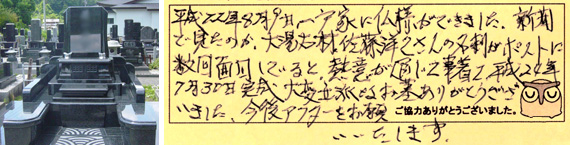 平成22年8月9日 我家に仏様ができました。新聞
で見たのか、大場石材佐藤洋さんの名刺がポストに
数回面同していると、熱意が通じて事着て平成24年
7月30日完成 大変立派なお墓ありがとうござ
いました。今後アフターをお願
いいたします。
ご協力ありがとうございました。